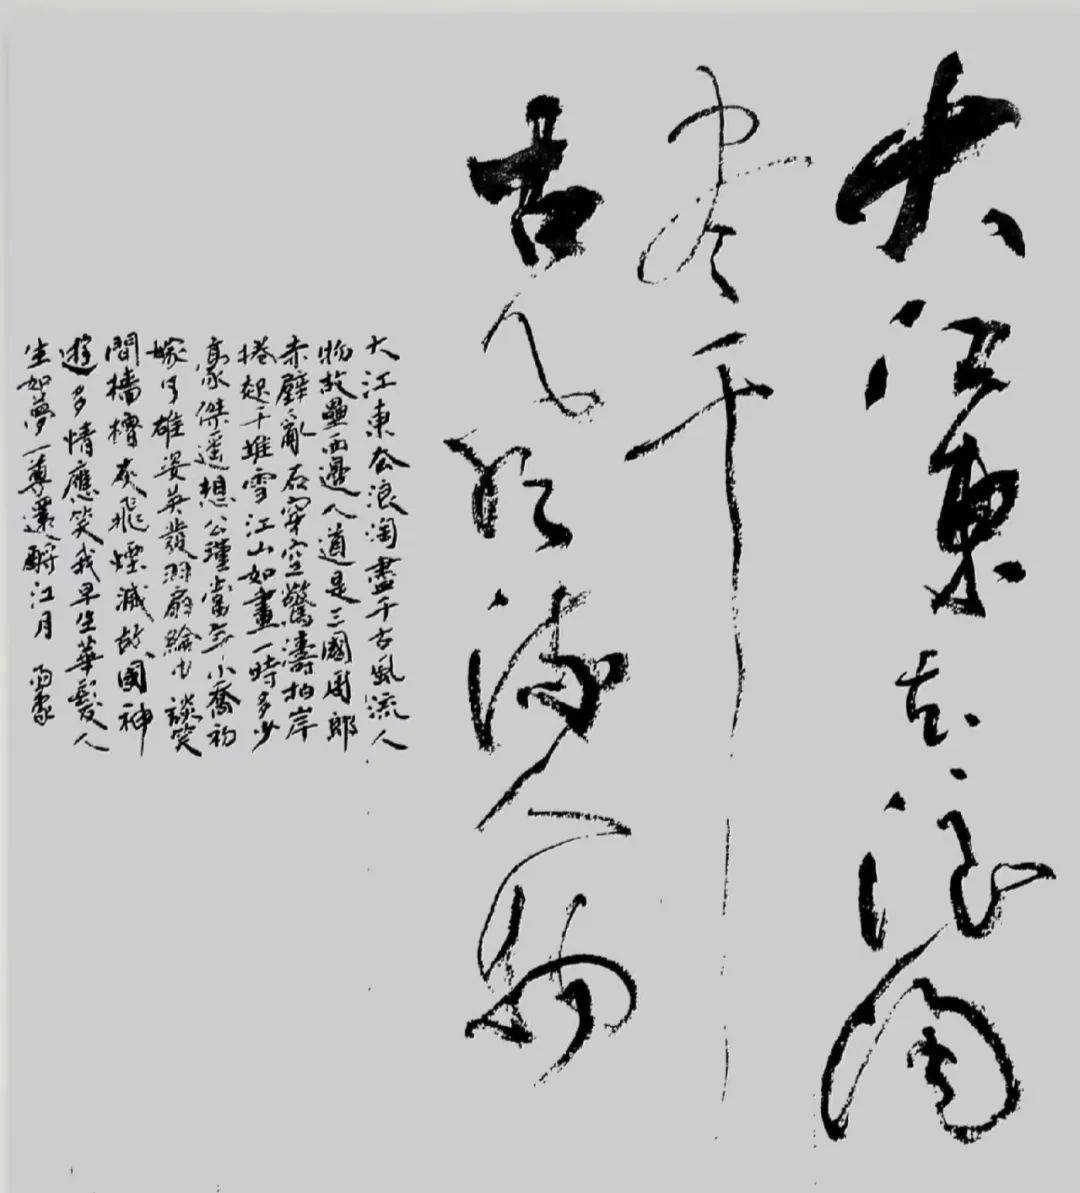 大江東去浪淘
尽千
古風流人物
大江東去浪淘盡千古風流人
物故壘西邊人道是三國周郎
赤壁亂石穿空驚濤拍岸
捲起千堆雪江山如畫一時多少
豪傑遥想公瑾當年小喬初
嫁了雄姿英發羽扇綸巾談笑
間檣櫓灰飛煙滅故國神
遊多情應笑我早生華髮人
生如夢一尊還酹江月